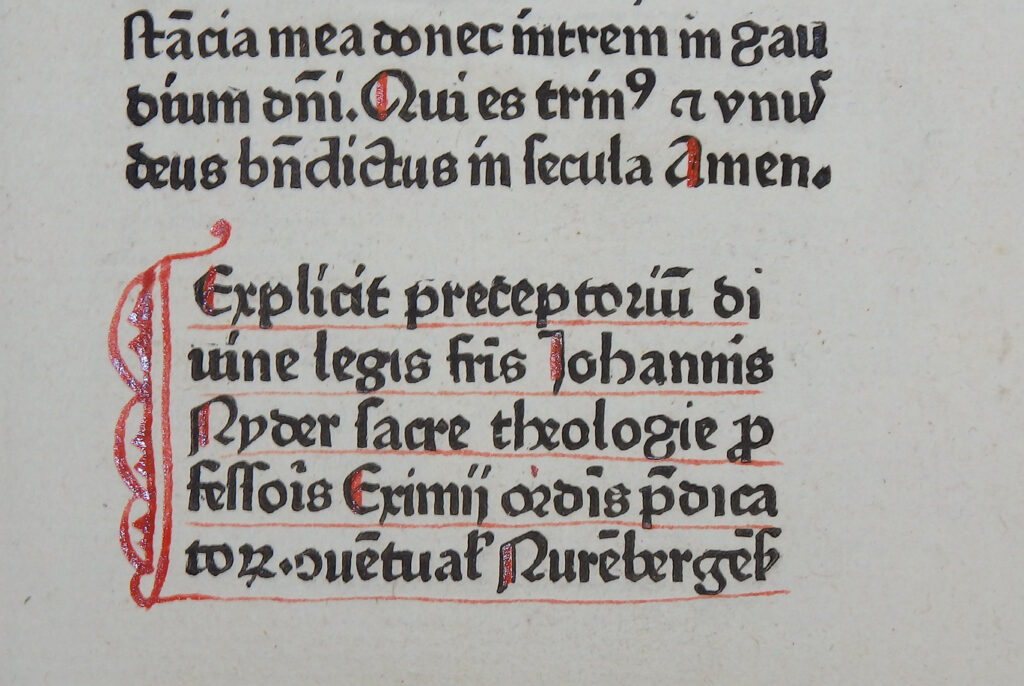 ſtācia mea donec intrem in gau
dium dn̄i. Qui es trinꝰ ⁊ vnuſ
deus bn̄dictus in ſecula Amen.
Explicit preceptoriū di
uine legis fr̄is Johannis
Nyder ſacre theologie ꝓ
feſſois Eximij ordīs p̄dica
toꝝ. ꝯuētual̕ Nurēbergēſ̕